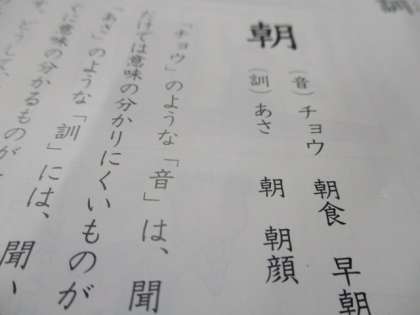 訓
朝
(音)チョウ 朝食 早朝
(訓)あさ 朝 朝顔
「チョウ」のような「音」は、聞
だけでは意味の分かりにくいものが
「あさ」のような「訓」には、聞い
ぐに意味の分かるものが